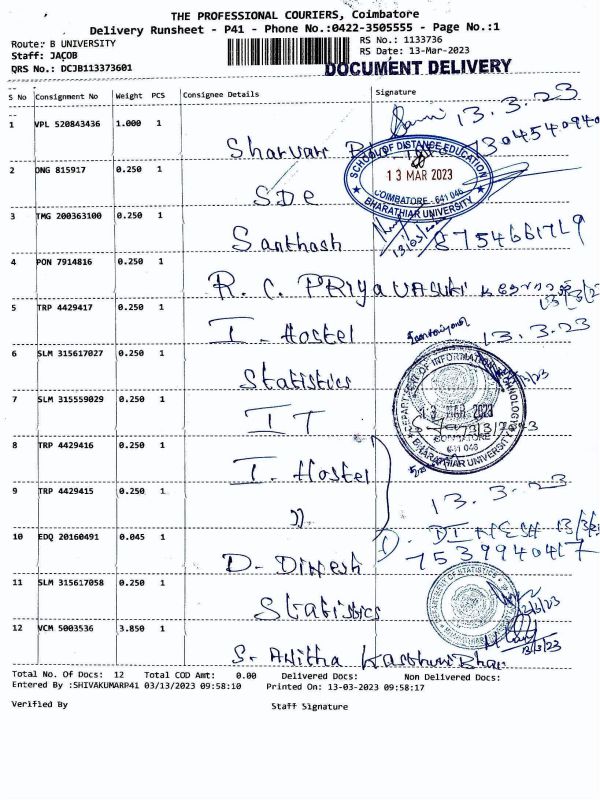 THE PROFESSIONAL COURIERS, Coimbatore
Delivery Runsheet - P41 - Phone No.:0422-3505555 - Page No.:1
Route: B UNIVERSITY
RS No.: 1133736
Staff: JACOB
RS Date: 13-Mar-2023
QRS No.: DCJB113373601
DOCUMENT DELIVERY
S No Consignment No Weight PCS Consignee Details Signature
13.3.23
1 VPL 520843436 1.000 1
SCHOOL OF DISTANCE EDUCATION
2 DNG 815917 0.250 1
13 MAR 2023
SDE
COIMBATORE - 641 046
BHARATHIAR UNIVERSITY
3 TMG 200363100 0.250 1
Santhosh 8754661729
4 PON 7914816 0.250 1
R. C. PRIYAVASUKI
5 TRP 4429417 0.250 1
I - Hostel 13.3.23
6 SLM 315617027 0.250 1
Statistics
DEPARTMENT OF INFORMATION TECHNOLOGY
7 SLM 315559029 0.250 1
13 MAR 2023
IT
COIMBATORE
641 046
BHARATHIAR UNIVERSITY
8 TRP 4429416 0.250 1
I - Hostel
9 TRP 4429415 0.250 1
13.3.23
"
D. DINESH 13/3/23
10 EDQ 20160491 0.045 1
7539940417
D- Dinesh
11 SLM 315617058 0.250 1
DEPARTMENT OF STATISTICS
Statistics
12 VCM 5003536 3.850 1
13/3/23
S. Anitha
Total No. Of Docs: 12 Total COD Amt: 0.00 Delivered Docs: Non Delivered Docs:
Entered By :SHIVAKUMARP41 03/13/2023 09:58:10 Printed On: 13-03-2023 09:58:17
Verified By Staff Signature